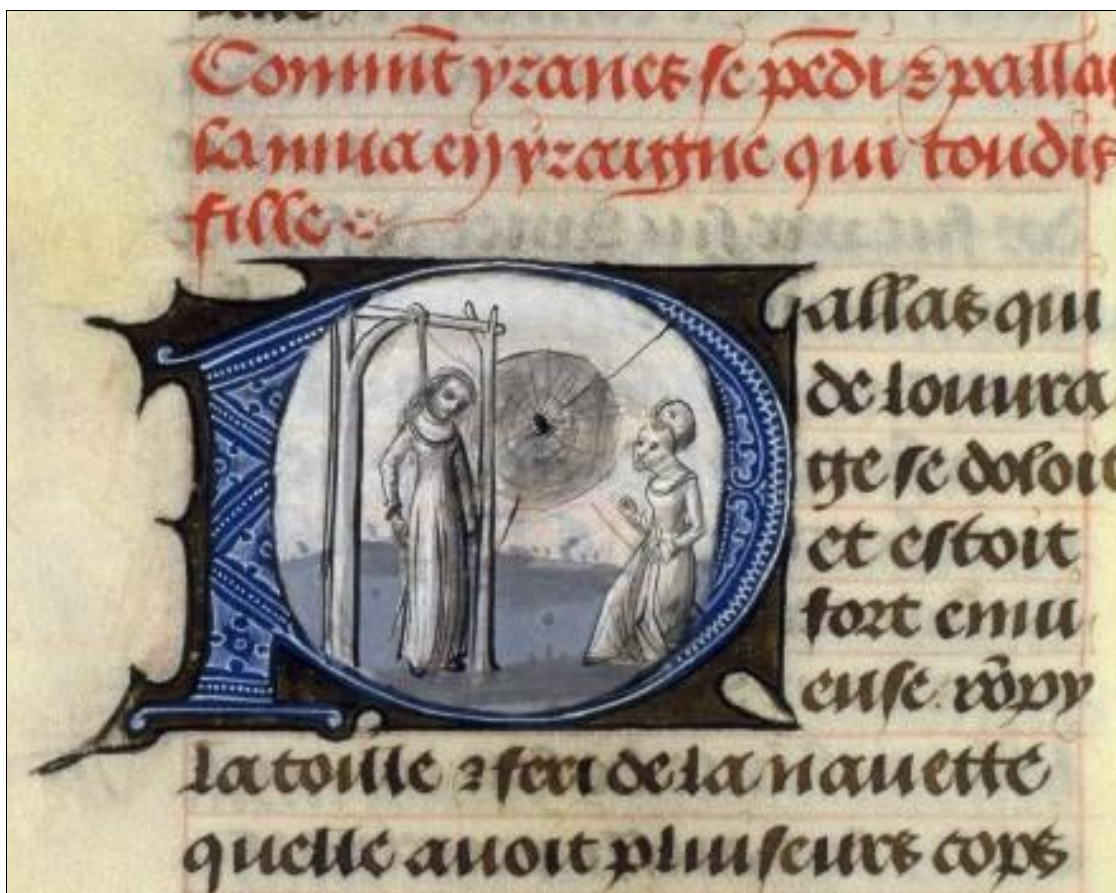 Comm̄t yranes se p̄edi ⁊ pallas
la mua en yraigne qui toudis
fille
Pallas qui
de louura
ge se doloit
et estoit
fort enui
euse. rōpy
la toille ⁊ feri de la nauette
quelle auoit pluiseurs cops